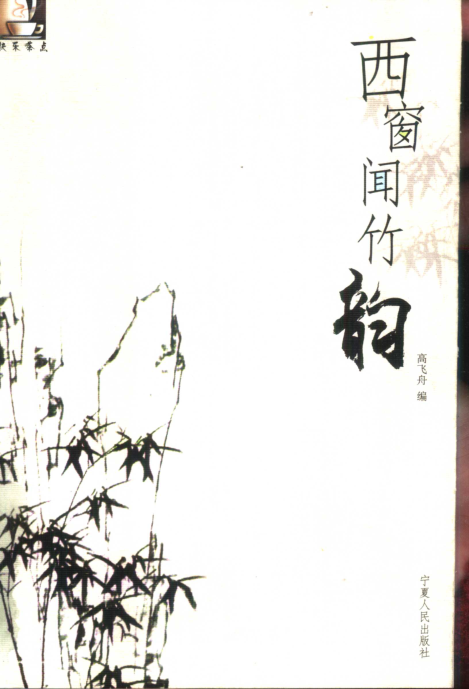 西窗闻竹韵
高飞舟 编
宁夏人民出版社